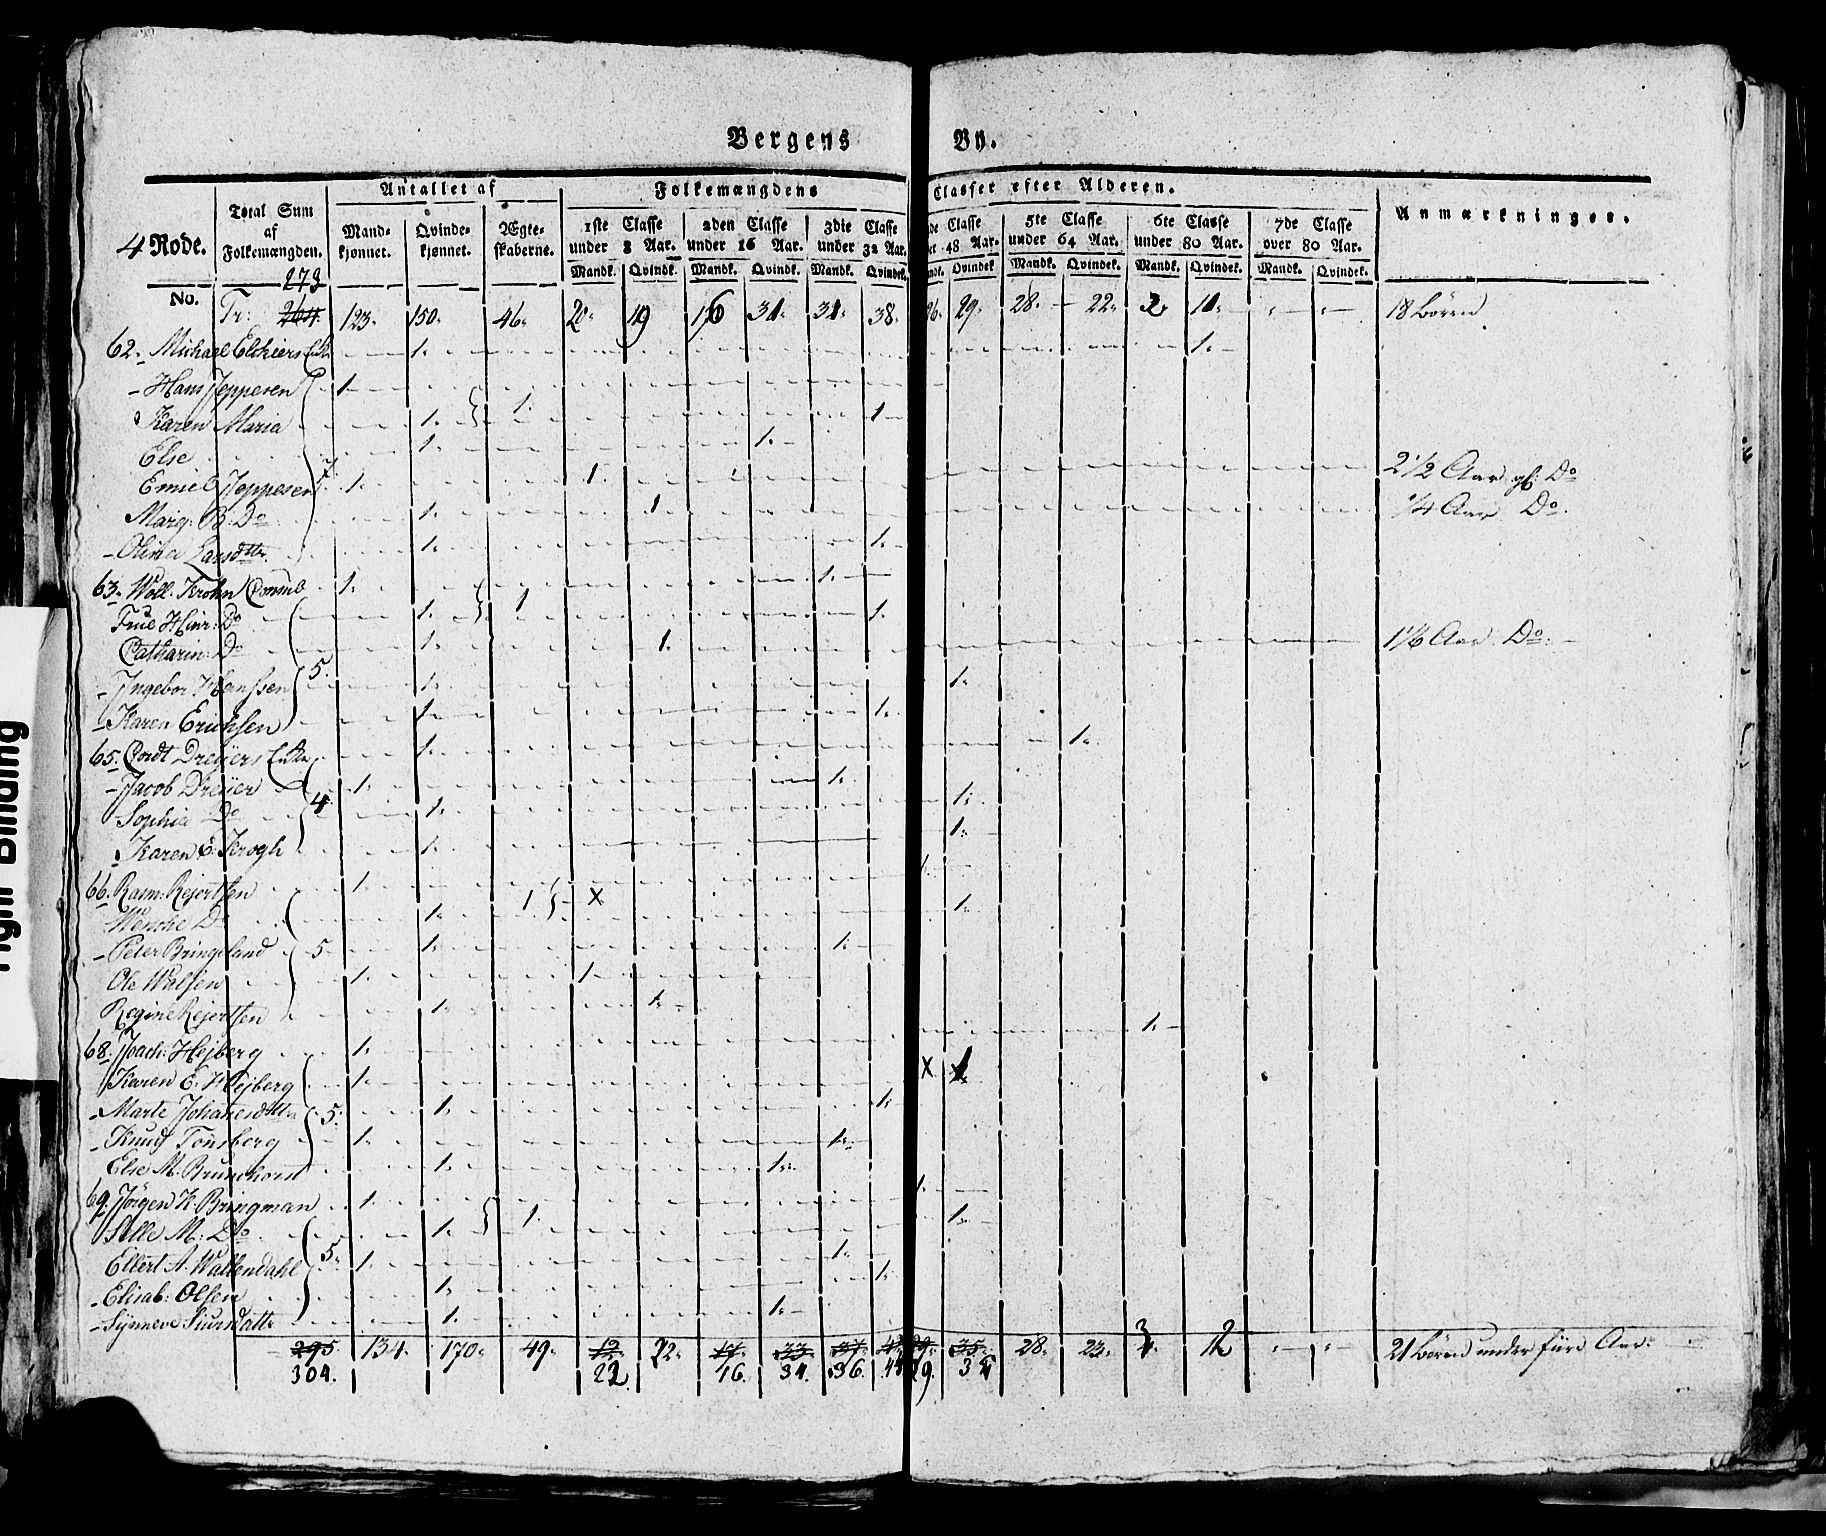 Bergens By.
4 Rode. Total Sum af Folkemængden. Antallet af Folkemængdens Classer efter Alderen. Anmærkninger.
Mandkjønnet. Qvindekjønnet. Ægteskaberne. 1ste Classe under 8 Aar. 2den Classe under 16 Aar. 3die Classe under 32 Aar. de Classe 48 Aar. 5te Classe under 64 Aar. 6te Classe under 80 Aar. 7de Classe over 80 Aar.
Mandk. Qvindk. Mandk. Qvindk. Mandk. Qvindek. Qvindek Mandk. Qvindek. Mandk. Qvindek. Mandk. Qvindek.
273
No. Tr: 264 123. 150. 46. 20. 19 16 31. 31. 38. 26. 29. 28. 22. 2. 11. 18 Børn
62. Michael Elchiers Enke 1. 1.
Hans Jeppesen 1
Karen Maria 1. 1. 1
Else 1. 1.
Emiel Jeppesen 7. 1. 1. 2 1/2 Aar gl: Do
Marg: B: Do 1. 1. 1/4 Aar Do.
Olina Larsdttr. 1. 1.
63. Woll: Krohn 1. 1.
Frue Hinr: Do 1. 1 1.
Catharin: Do 1. 1. 1 1/6 Aar Do.
Ingebor Hanssen 5. 1. 1.
Karen Erichsen 1. 1.
65. Cordt Dreijers Enke 1. 1.
Jacob Dreijer 1. 1.
Sophia Do 4. 1. 1.
Karen E: Krogh 1. 1.
66. Rasm: Rejertsen 1. 1 x
Wenche Do 1. 1.
Peter Bringeland 5 1. 1.
Ole Wolsen 1. 1.
Regine Rejertsen 1. 1.
68. Joach: Hejberg 1. 1.
Karen E. Hejberg 1. x 1
Marte Johanesdttr 5. 1. 1.
Knud Tonsberg 1. 1.
Else M. Brunchorst 1. 1.
69. Jørgen K. Bringman 1. 1.
Sille M: Do 1. 1. 1.
Eilert A. Wallendahl 5. 1. 1.
Elisab: Olsen 1. 1.
Synneve Siursdattr 1. 1.
295 134. 170. 49. 22. 17. 33. 37. 35. 28. 23. 3 12 21 Børn under fiire Aar.
304. 22. 16. 34. 36. 29.